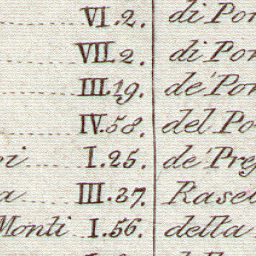 VI. 2. di Por
VII. 2. di Por
III. 19. de' Por
IV. 58. del Po
I. 25. de' Preg
a III. 37. Rased
Monti I. 56. della